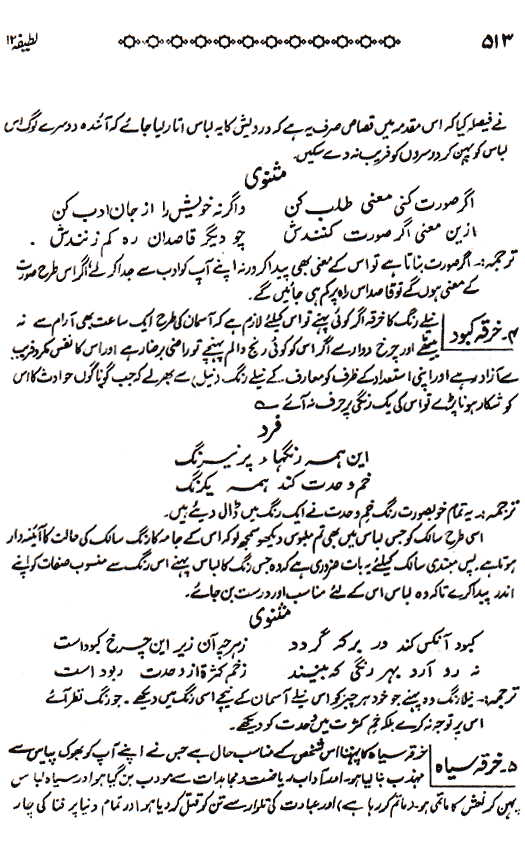 ۵۱۳ لطیفہ ۱۲
نے فیصلہ کیا کہ اس مقدمہ میں قصاص صرف یہ ہے کہ درویش کا یہ لباس اتار لیا جائے کہ آئندہ دوسرے لوگ اس
لباس کو پہن کر دوسروں کو فریب نہ دے سکیں۔
مثنوی
اگر صورت کنی معنی طلب کن وگرنہ خویش را از جان ادب کن
ازین معنی اگر صورت کنندش چو دیگر قاصدان رہ کم زنندش .
ترجمہ:۔ اگر صورت بناتا ہے تو اس کے معنی بھی پیدا کر ورنہ اپنے آپ کو ادب سے جدا کر لے اگر اس طرح صورت
کے معنی ہوں گے تو قاصد اس راہ پر کم ہی جائیں گے۔
۴۔ خرقہ کبود نیلے رنگ کا خرقہ اگر کوئی پہنے تو اس کیلئے لازم ہے کہ آسمان کی طرح ایک ساعت بھی آرام سے نہ
بیٹھے اور چرخ وار رہے اگر اس کو کوئی رنج و الم پہنچے تو راضی برضا رہے اور اس کا نفس مکر و فریب
سے آزاد رہے اور اپنی استعداد کے ظرف کو معارف کے نیلے رنگ (نیل) سے بھر لے کہ جب گوناگوں حوادث کا اس
کو شکار ہونا پڑے تو اس کی یک رنگی پر حرف نہ آئے
فرد
این ہمہ رنگہاء پر نیرنگ
خم وحدت کند ہمہ یکرنگ
ترجمہ:۔ یہ تمام خوبصورت رنگ خم وحدت نے ایک رنگ میں ڈال دیئے ہیں۔
اسی طرح سالک کو جس لباس میں بھی تم ملبوس دیکھو سمجھ لو کہ اس کے جامہ کا رنگ سالک کی حالت کا آئینہ دار
ہوتا ہے پس مبتدی سالک کیلئے یہ بات ضروری ہے کہ وہ جس رنگ کا لباس پہنے اس رنگ سے منسوب صفات کو اپنے
اندر پیدا کرے تاکہ وہ لباس اس کے لئے مناسب اور درست بن جائے۔
مثنوی
کبود آنکس کند در برکہ گردد زہر چہ آن زیر این چرخ کبود است
نہ رو آرد بہر رنگی کہ بیند زخم کثرۃ از وحدت ربود است
ترجمہ:۔ نیلا رنگ وہ پہنے جو خود ہر چیز کو اس نیلے آسمان کے نیچے اسی رنگ میں دیکھے۔ جو رنگ نظر آئے
اس پر توجہ نہ کرے بلکہ خم کثرت میں وحدت کو دیکھے۔
۵۔ خرقہ سیاہ خرقہ سیاہ کا پہننا اس شخص کے مناسب حال ہے جس نے اپنے آپ کو بھوک پیاس سے
مہذب بنا لیا ہو۔ اور آداب ریاضت و مجاہدات سے مودب بن گیا ہو اور سیاہ لباس
پہن کر نفس کا ماتمی ہو۔ (ماتم کر رہا ہے) اور عبادت کی تلوار سے تن کو قتل کر دیا ہو اور تمام دنیا پر فنا کی چار